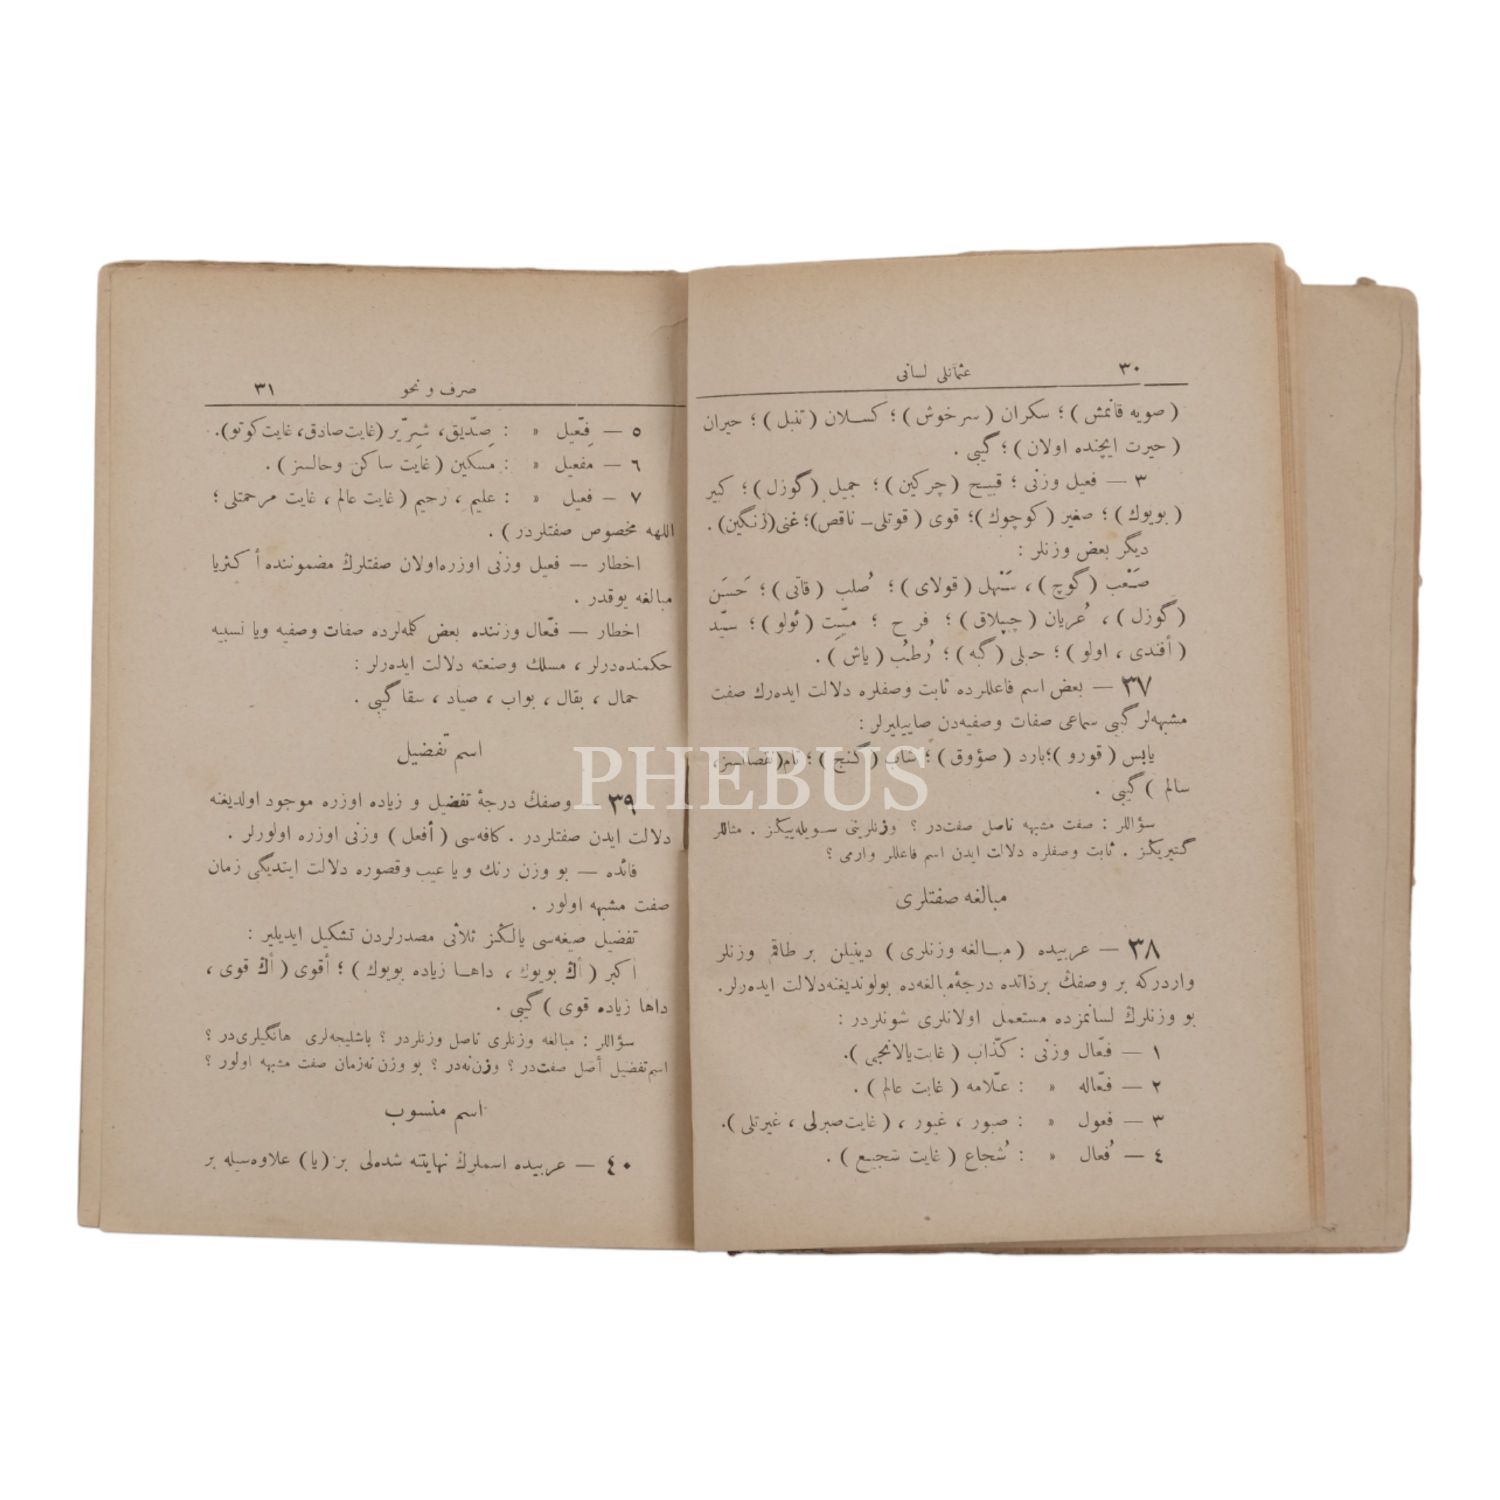 ٣٠
عثمانلی لسانی
( صویه قانمش ) ؛ سکران ( سرخوش ) ؛ کسلان ( تنبل ) ؛ حیران
( حیرت ایچنده اولان ) ؛ گیبی .
٣ — فعیل وزنی ؛ قبیح ( چرکین ) ؛ جمیل ( گوزل ) ؛ کبیر
( بویوك ) ؛ صغیر ( کوچوك ) ؛ قوی ( قوتلی ـ ناقص ) ؛ غنی ( زنگین ) .
دیگر بعض وزنلر :
صَعْب ( گوچ ) ، سَهْل ( قولای ) ؛ صُلب ( قاتی ) ؛ حَسَن
( گوزل ) ، عُریان ( چیپلاق ) ؛ فرح ؛ میّت ( ئولو ) ؛ سیّد
( أفندی ، اولو ) ؛ حبلی ( گبه ) ؛ رُطب ( یاش ) .
٣٧ — بعض اسم فاعللرده ثابت وصفلره دلالت ایده‌رك صفت
مشبهه‌لر گیبی سماعی صفات وصفیه‌دن صاییلیرلر :
یابس ( قورو ) ؛ بارد ( صؤوق ) ؛ شاب ( گنج ) ؛ تام ( نقصانسز ،
سالم ) گیبی .
سؤاللر : صفت مشبهه ناصل صفت‌در ؟ وزنلرینی سویله‌ییکز . مثاللر
گتیریکز . ثابت وصفلره دلالت ایدن اسم فاعللر وارمی ؟
مبالغه صفتلری
٣٨ — عربیده ( مبالغه وزنلری ) دینیلن بر طاقم وزنلر
واردرکه بر وصفڭ بر ذاتده درجهٔ مبالغه‌ده بولوندیغنه دلالت ایده‌رلر.
بو وزنلرڭ لسانمزده مستعمل اولانلری شونلردر :
١ — فعّال وزنی : کذّاب ( غایت یالانجی ).
٢ — فعّاله » : علّامه ( غایت عالم ) .
٣ — فعول » : صبور ، غیور ، ( غایت صبرلی ، غیرتلی ).
٤ — فُعال » : شُجاع ( غایت شجیع ) .
صرف و نحو
٣١
٥ — فِعّیل » : صِدّیق، شِرّیر (غایت صادق، غایت کوتو).
٦ — مفعیل » : مسکین ( غایت ساکن وحالسز ) .
٧ — فعیل » : علیم ، رحیم ( غایت عالم ، غایت مرحمتلی ؛
اللهه مخصوص صفتلردر ) .
اخطار — فعیل وزنی اوزره اولان صفتلرڭ مضموننده أکثریا
مبالغه یوقدر .
اخطار — فعّال وزننده بعض کلمه‌لرده صفات وصفیه ویا نسبیه
حکمنده‌درلر ، مسلك وصنعته دلالت ایده‌رلر :
حمال ، بقال ، بواب ، صیاد ، سقا گیبی .
اسم تفضیل
٣٩ — وصفڭ درجهٔ تفضیل و زیاده اوزره موجود اولدیغنه
دلالت ایدن صفتلردر . کافه‌سی ( أفعل ) وزنی اوزره اولورلر .
فائده — بو وزن رنك ویا عیب وقصوره دلالت ایتدیگی زمان
صفت مشبهه اولور .
تفضیل صیغه‌سی یالڭز ثلاثی مصدرلردن تشکیل ایدیلیر :
اکبر ( أڭ بویوك ، داها زیاده بویوك ) ؛ أقوی ( أڭ قوی ،
داها زیاده قوی ) گیبی .
سؤاللر : مبالغه وزنلری ناصل وزنلردر ؟ باشلیجه‌لری هانگیلری‌در ؟
اسم تفضیل أصل صفت‌در ؟ وزن نه‌در ؟ بو وزن نه‌زمان صفت مشبهه اولور ؟
اسم منسوب
٤٠ — عربیده اسملرڭ نهایتنه شده‌لی بر ( یا ) علاوه‌سیله بر
PHEBUS